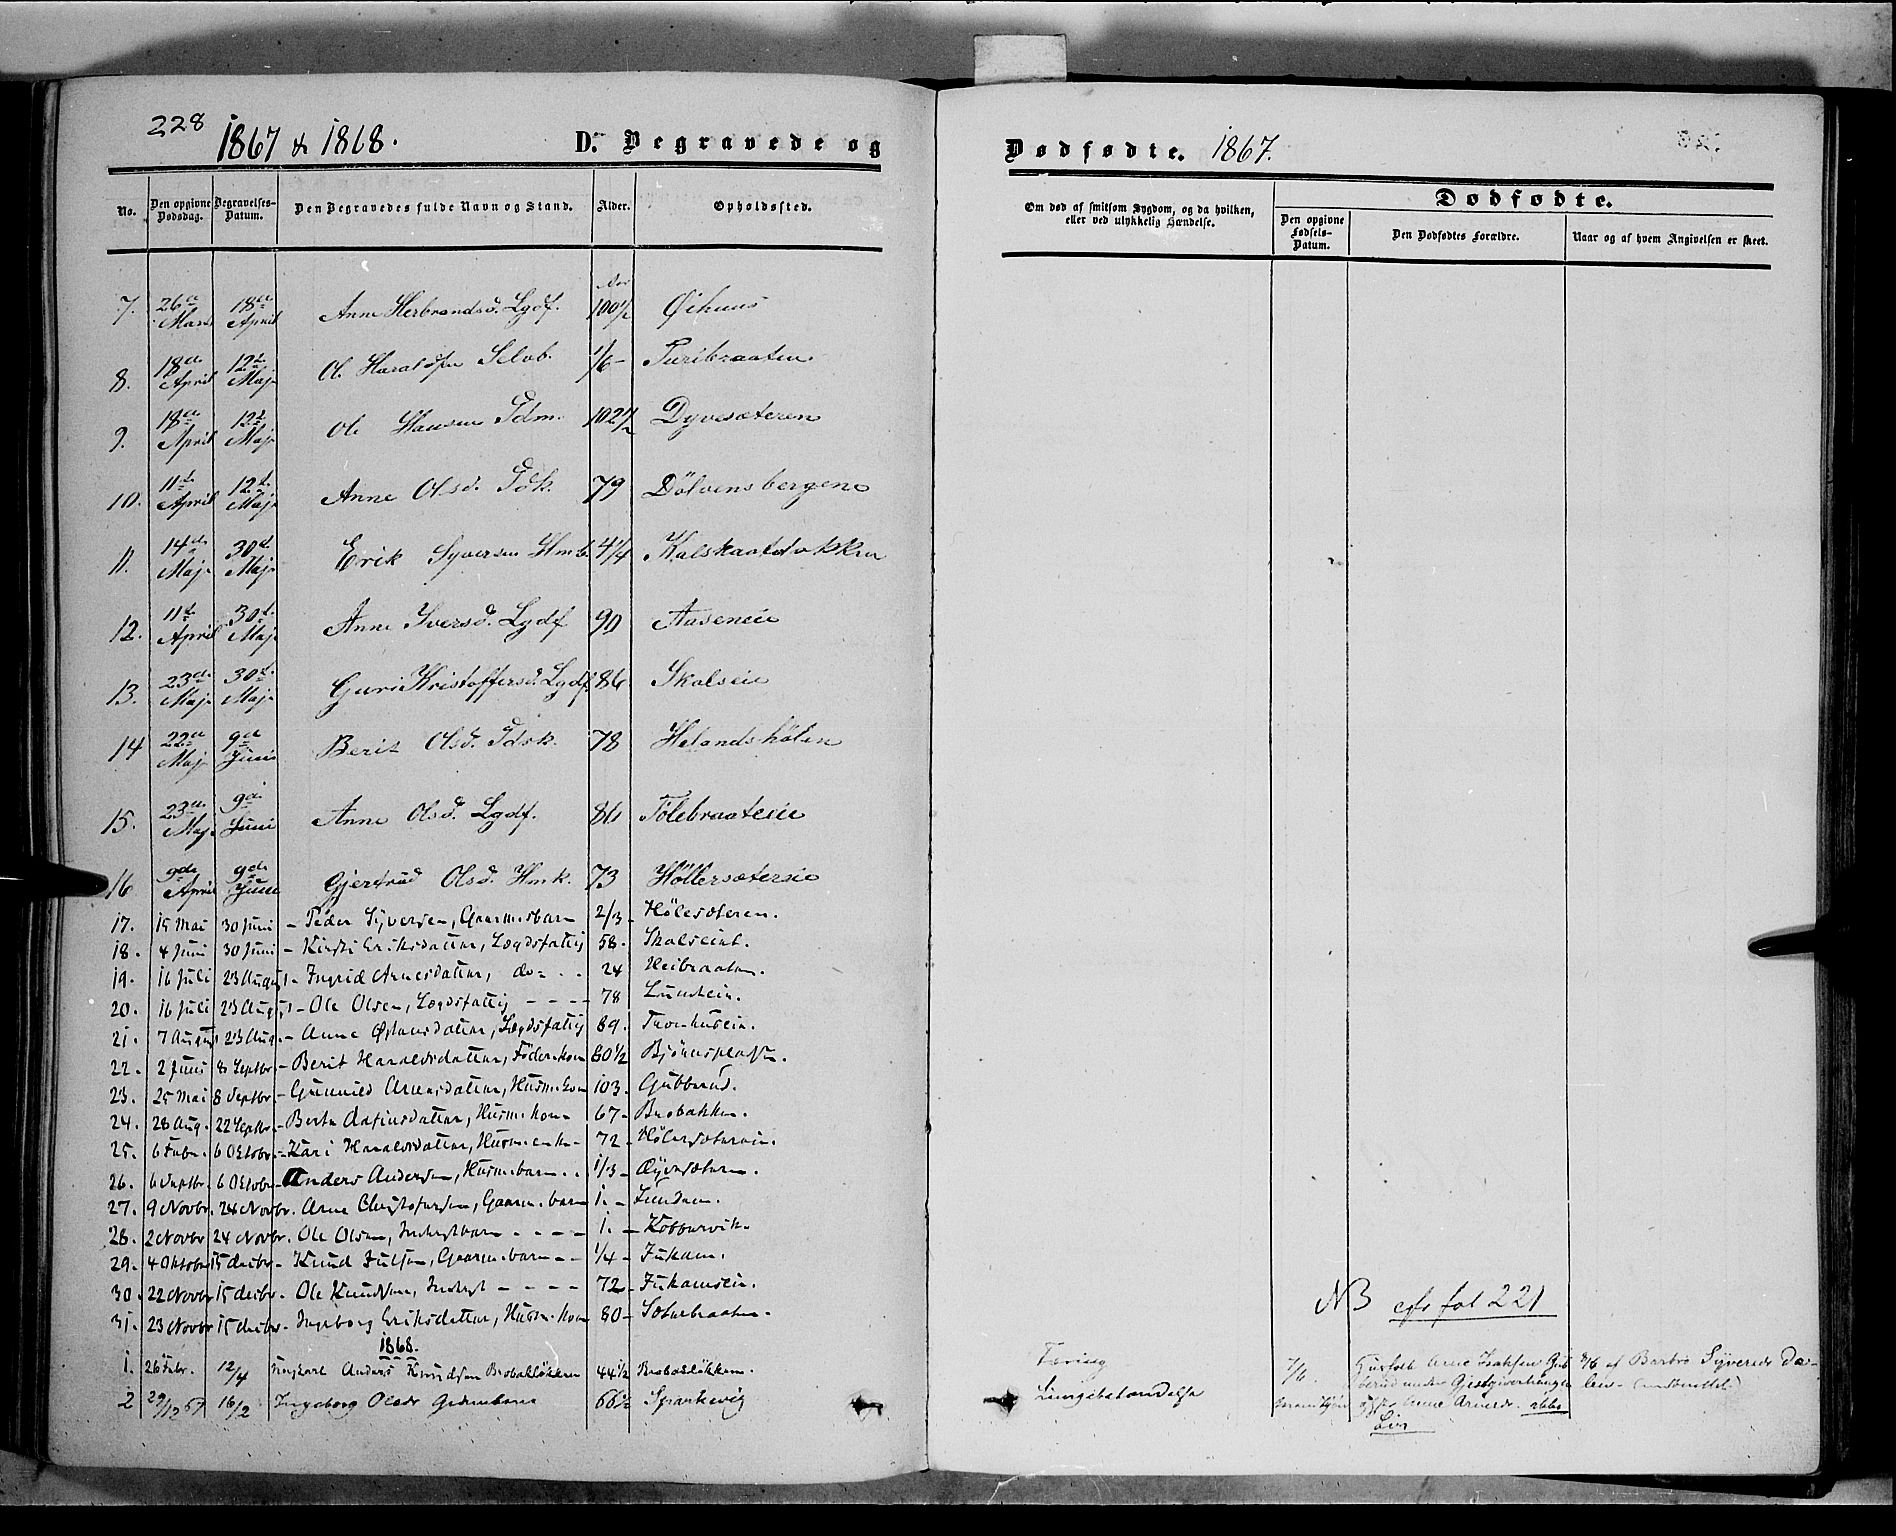 228
1867 & 1868. D. Begravede og
No. Den opgivne Dødsdag. Begravelses-Datum. Den Begravedes fulde Navn og Stand. Alder. Opholdssted.
7. 26de Mars 18de April Anne Herbrandsd. Lgdf. 100 1/2 Øihuus
8. 18de April 12te Maj Ol. Haralds. Selvb. 1/6 - Turibraaten
9. 18de April 12te Maj Ole Hansen Fdm. 102 1/2 Dyvesæteren
10. 11te April 12te Maj Anne Olsd. Fdk. 79 Dölvensbergene
11. 14de Maj 30te Maj Erik Syversen Hmb. 4 1/4
12. 11te April 30te Maj Anne Iversd. Lgdf 90 Aaseneie
13. 23de Maj 30te Maj Guri Kristoffersd. Lgdf. 86 Skalseie
14 22de Maj 9de Juni Berit Olsd. Fdsk. 78 Helandshølen
15. 23de Maj 9de Juni Anne Olsd. Lgdf. 86 Tölebraateeie
16 9de April 9de Juni Gjertrud Olsd. Hmk. 73 Höllersætereie
17. 15 Mai 30 Juni - Peder Syversen, Gaarmsbarn 2/3 - Hølesæteren.
18. 4 Juni 30 Juni - Kirsti Eriksdatter, Lægdsfattig 58. Skalseiet.
19. 16 Juli 23 August - Ingrid Arnesdatter, do - . . 24 Heibraaten.
20. 16 Juli 23 August - Ole Olsen, Lægdsfattig - - - - 78 Lundeie.
21. 7 August 23 Aug. - Anne Østensdatter, Lægdsfattig 89.
22. 2 Juni 8 Septbr. - Berit Haraldsdatter, Föderkone 80 1/2 Bjørnsplassen.
23. 25 Mai 8 Septbr. - Gunnild Arnesdatter, Husm.kone 103. Gubberud.
24. 28 Aug. 22 Septbr. - Berte Aafinsdatter, Husm.kone 67 - Brobakken.
25. 6 Febr. 6 Oktobr. - Kari Haraldsdatter, Husm.enke - 72 - Hølersæterein.
26. 6 Septbr. 6 Oktobr - Anders Andersen, Husm.barn . . 1/3 - Dyvesæteren.
27. 9 Novbr. 24 Novbr. Arne Christofersen, Gaarm.barn 1. - Sundem.
28. 2 Novbr 24 Novbr. Ole Olsen, Inderstbarn - - - - 1. - Kobbervik.
29. 4 Oktobr 15 decbr - Knud Juulsen, Gaarm.barn - - 1/4 - Jukam.
30. 22 Novbr 15 decbr - Ole Knudsen, Inderst - - - - 72 - Jukamseie.
31. 23 Novbr 15 decbr - Ingeborg Eriksdatter, Husm.kone 80 - Sæterbraaten.
1868.
1. 26 Febr. 12/4 Ungkarl Anders Knudsen Brobakløkken 44 1/2 Brobakløkken.
2 29/12 67 16/2 Ingeborg Olsdr 66 1/2 Sparkevig
Dødfødte. 1867.
Om død af smitsom Sygdom, og da hvilken, eller ved ulykkelig Hændelse.
Dødfødte.
Den opgivne Fødsels-Datum. Den Dødfødtes Forældre. Naar og af hvem Angivelsen er skeet.
NB cfr fol 221
Tæring 7/6. Husfolk Arne Isaksen Gub 9/6 af Barbro Syversdr Da-
Lungebetændelse berud under og Anne Arnesdr.